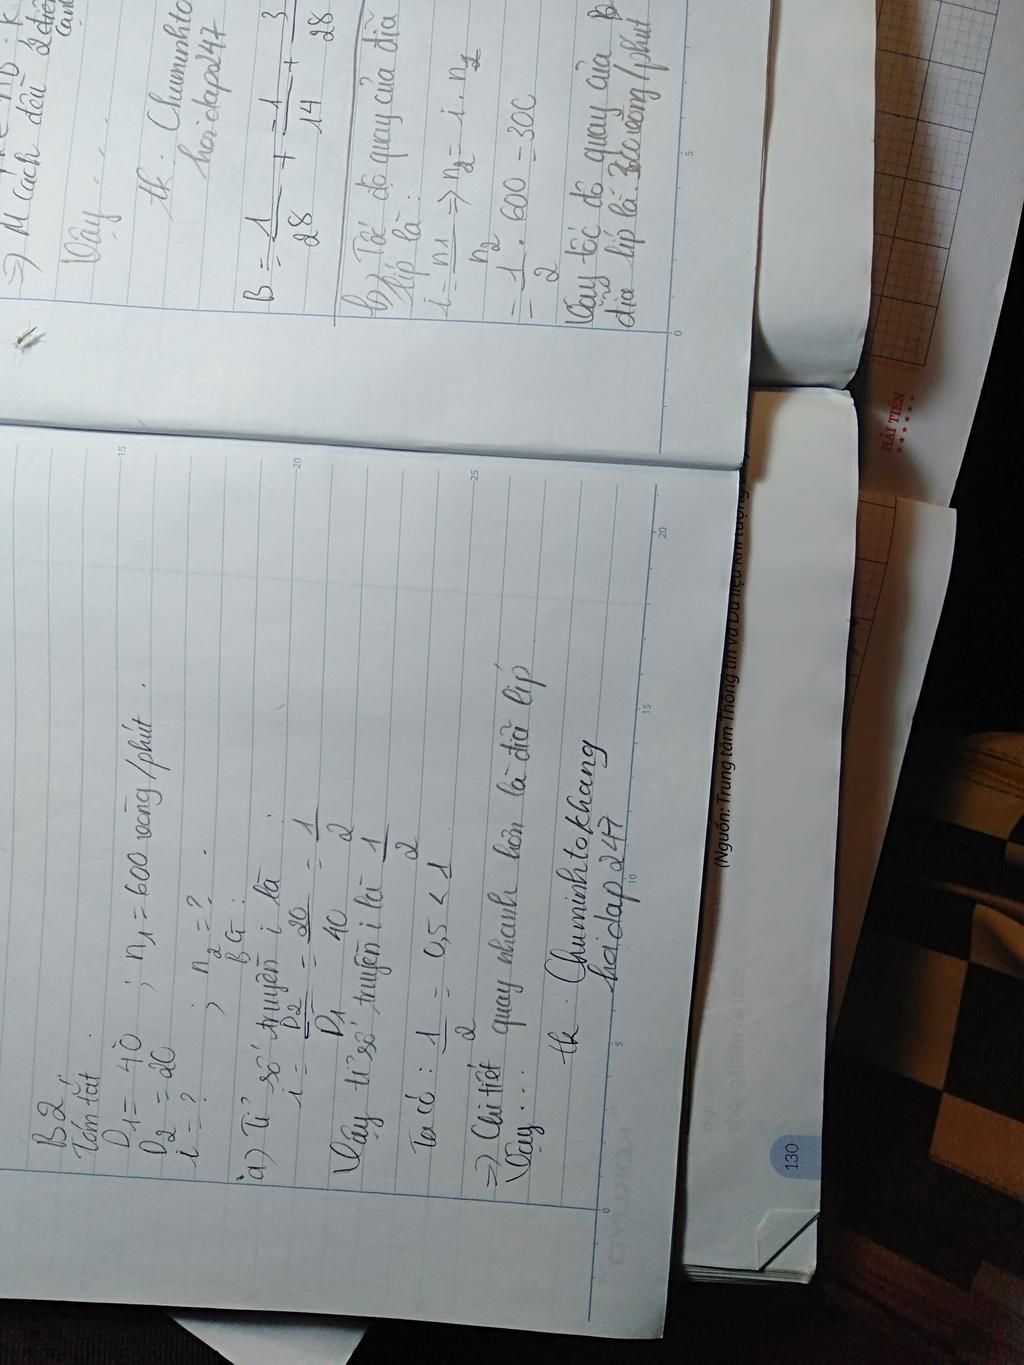 B2
Tóm tắt.
D1 = 40 ; n1 = 600 vòng/phút.
D2 = 20
i = ? ; n2 = ? .
BG :
a) Tỉ số truyền i là
i = D2/D1 = 20/40 = 1/2
Vậy tỉ số truyền i là 1/2
Ta có : 1/2 = 0,5 < 1
=> Chi tiết quay nhanh hơn là đĩa líp
Vậy...
tk. Chuminhtokhang
hoidap247
=> M cách đều 2 điểm
Vậy
tk. Chuminhto
hoidap247
B = 1/28 + 1/14 + 3/28
b) Tốc độ quay của đĩa
líp là :
i = n1/n2 => n2 = i . n1
= 1/2 . 600 = 300
Vậy tốc độ quay của
đĩa líp là 300 vòng/phút
HẢI TIẾN
(Nguồn: Trung tâm Thông tin và Dữ liệu khí tượng
130